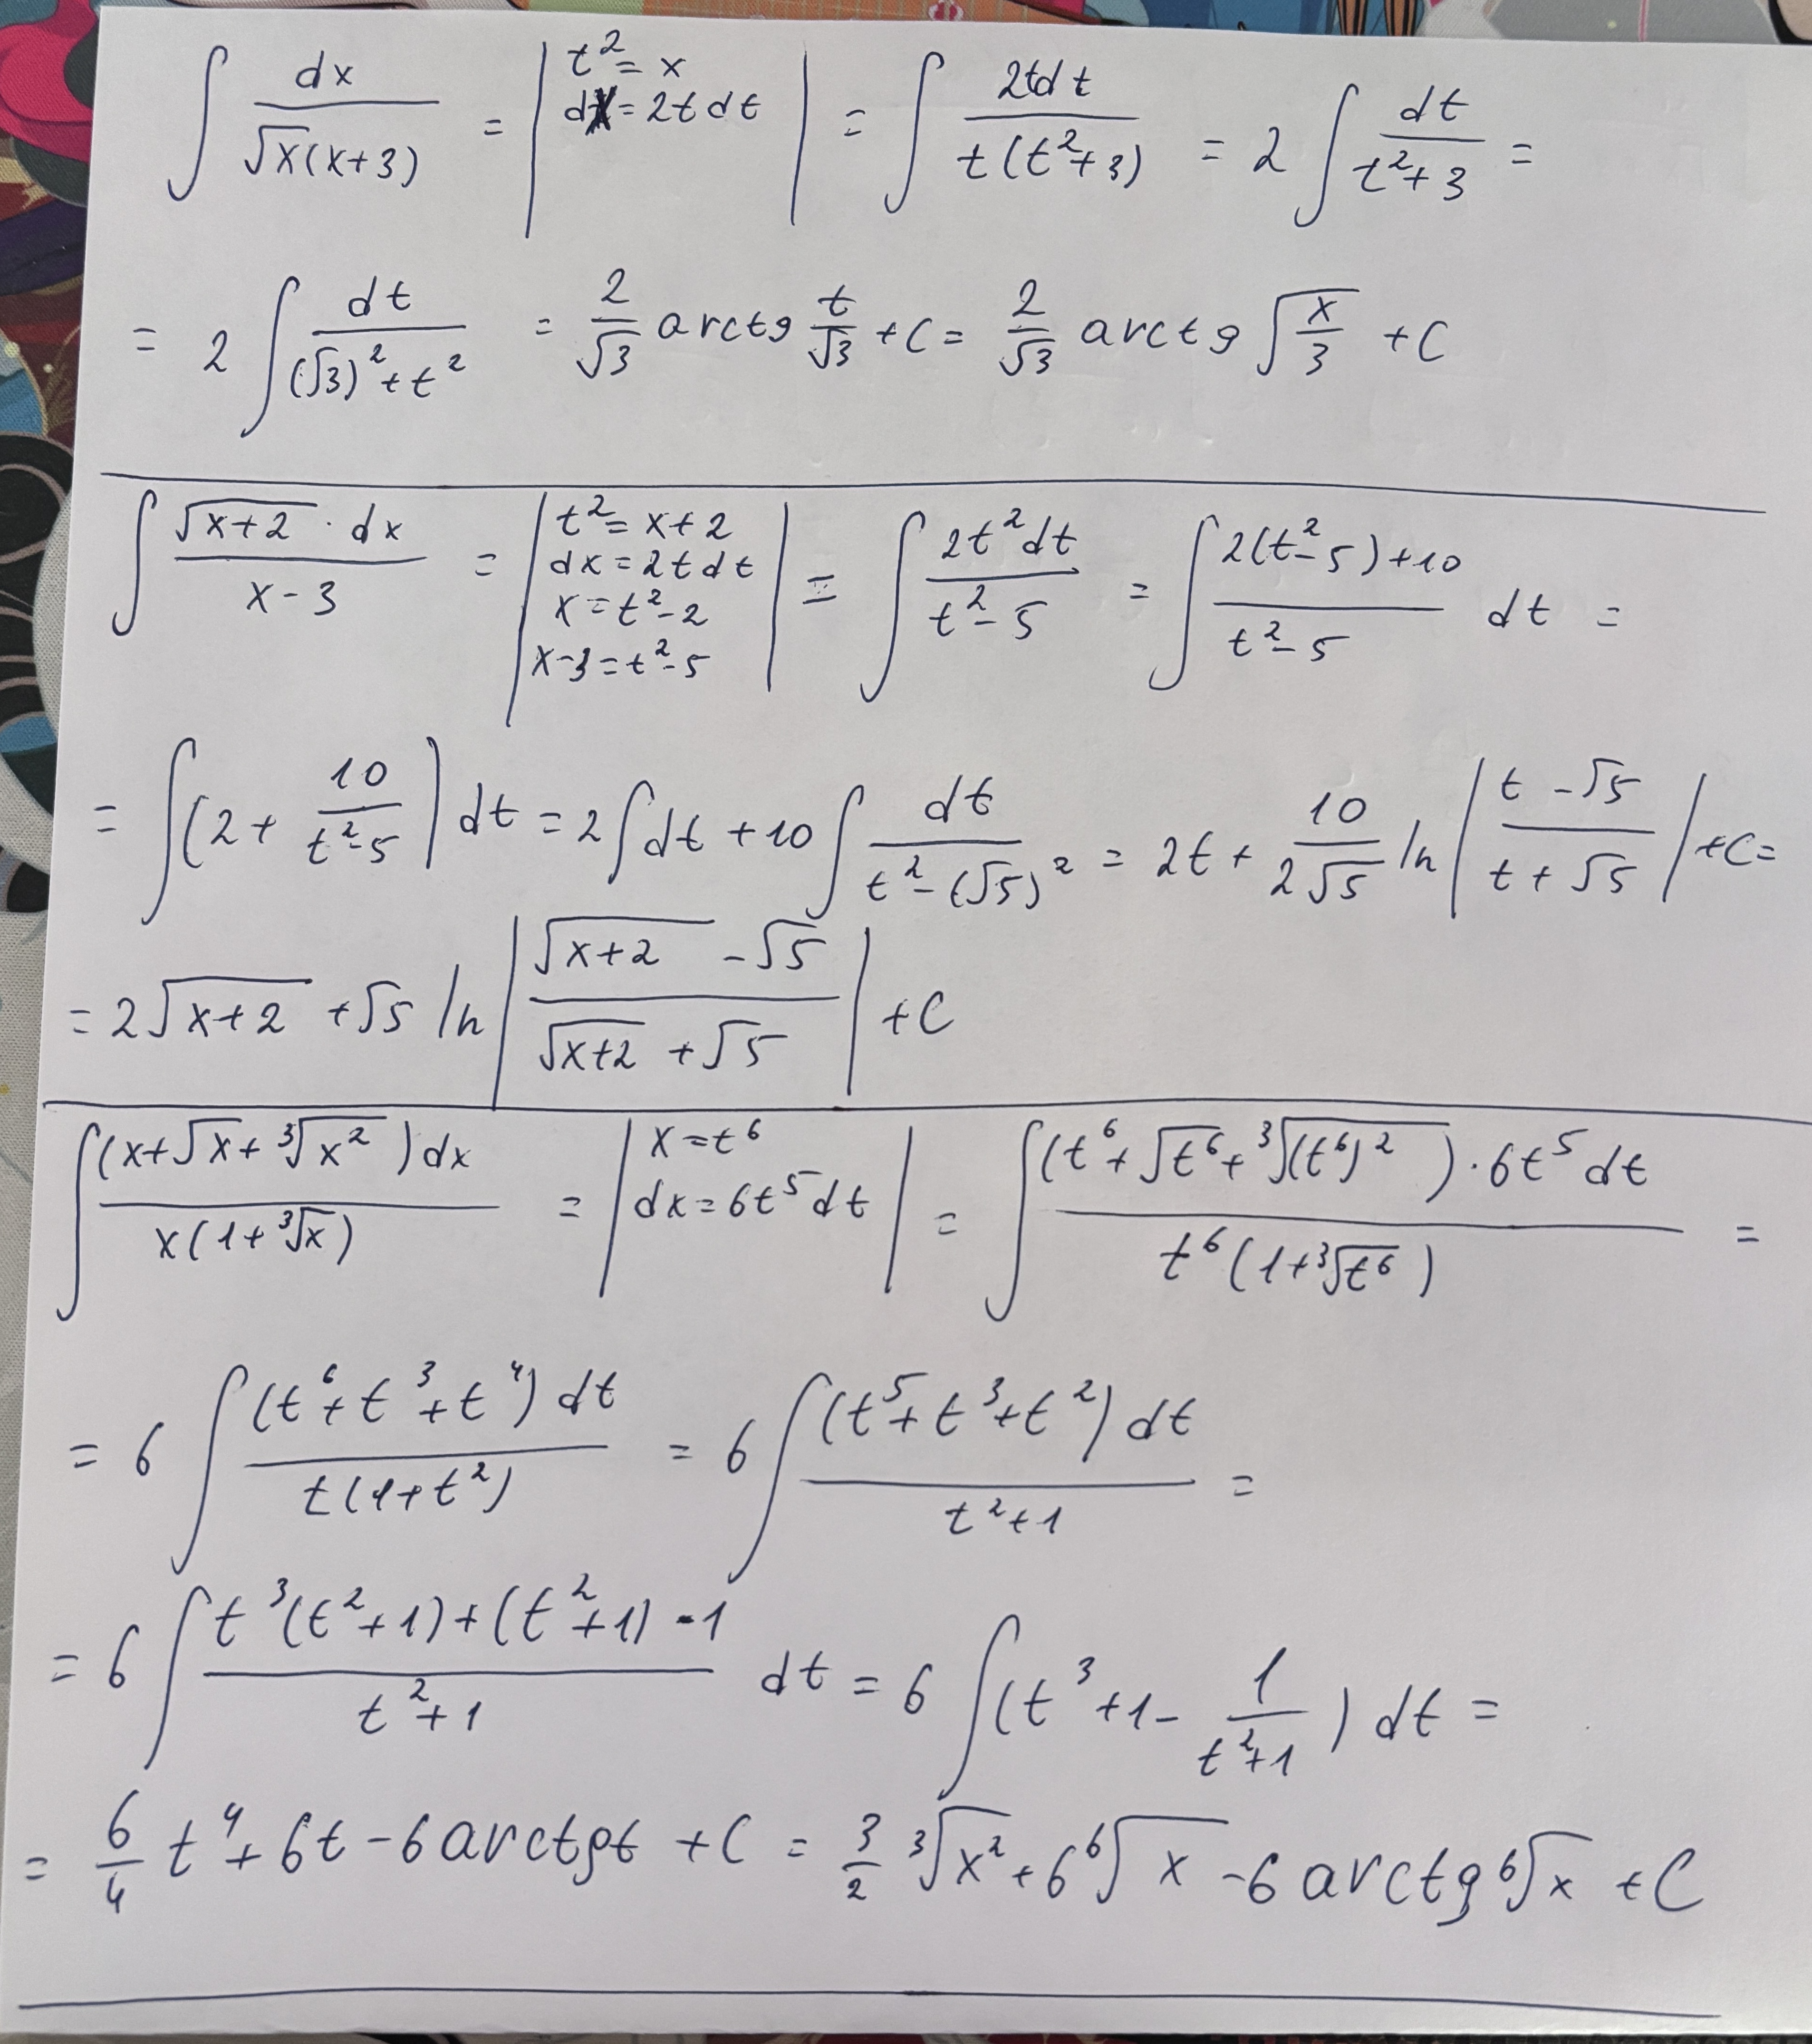 ∫ dx / (√x(x+3)) = | t² = x; dx = 2t dt | = ∫ 2t dt / (t(t²+3)) = 2 ∫ dt / (t²+3) =
= 2 ∫ dt / ((√3)² + t²) = 2/√3 arctg t/√3 + C = 2/√3 arctg √(x/3) + C
∫ √(x+2) · dx / (x-3) = | t² = x+2; dx = 2t dt; x = t²-2; x-3 = t²-5 | = ∫ 2t² dt / (t²-5) = ∫ (2(t²-5)+10) / (t²-5) dt =
= ∫ (2 + 10/(t²-5)) dt = 2 ∫ dt + 10 ∫ dt / (t²-(√5)²) = 2t + 10/(2√5) ln | (t-√5) / (t+√5) | + C =
= 2√(x+2) + √5 ln | (√(x+2) - √5) / (√(x+2) + √5) | + C
∫ (x+√x+∛(x²)) dx / (x(1+∛x)) = | x = t⁶; dx = 6t⁵ dt | = ∫ (t⁶+√(t⁶)+∛((t⁶)²)) · 6t⁵ dt / (t⁶(1+∛(t⁶))) =
= 6 ∫ (t⁶+t³+t⁴) dt / (t(1+t²)) = 6 ∫ (t⁵+t³+t²) dt / (t²+1) =
= 6 ∫ (t³(t²+1)+(t²+1)-1) / (t²+1) dt = 6 ∫ (t³+1-1/(t²+1)) dt =
= 6/4 t⁴ + 6t - 6 arctg t + C = 3/2 ∛(x²) + 6 ⁶√x - 6 arctg ⁶√x + C